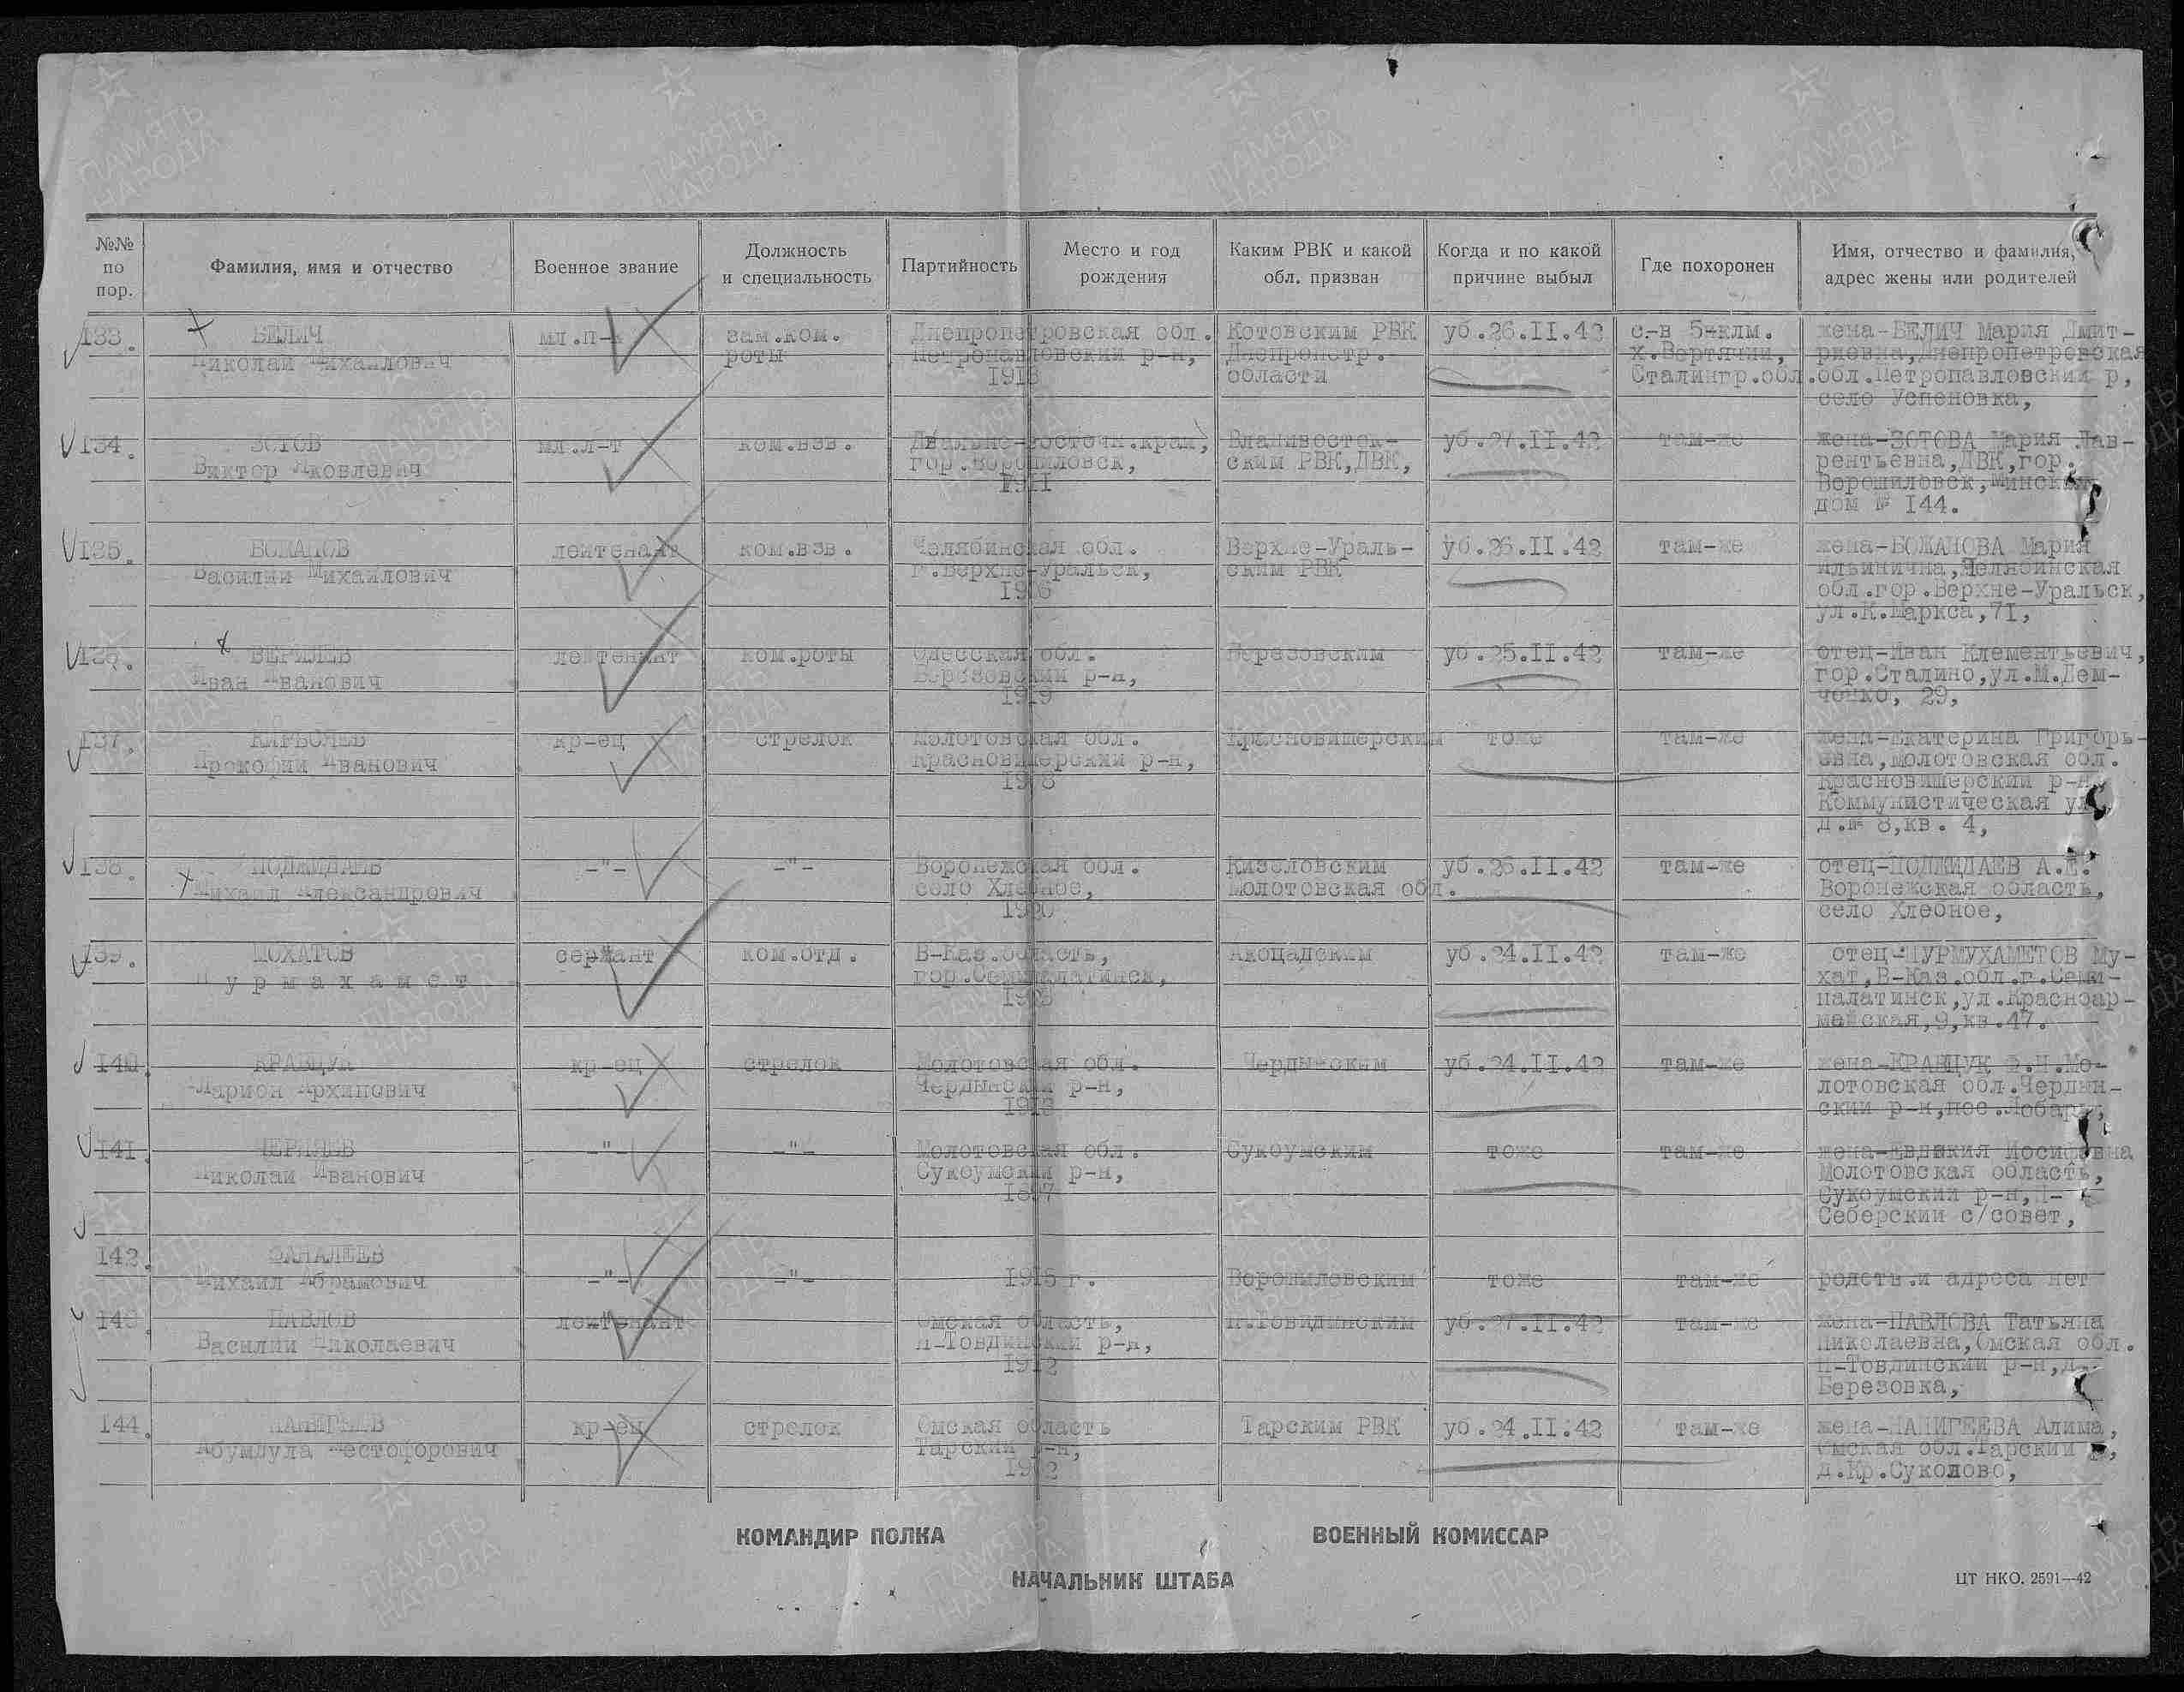 №№ по пор.
Фамилия, имя и отчество
Военное звание
Должность и специальность
Партийность
Место и год рождения
Каким РВК и какой обл. призван
Когда и по какой причине выбыл
Где похоронен
Имя, отчество и фамилия, адрес жены или родителей
133. БЕЛИЧ мл.л-т зам.ком. Днепропетровская обл. Котовским РВК уб.26.II.42 с.-в 5-клм. жена-БЕЛИЧ Мария Дмит-
Николай Михайлович роты Петропавловский р-н, Днепропетр. х.Вертячий, риевна,Днепропетровская
области Сталингр.обл. обл.Петропавловский р,
село Успеновка,
134. ЗОТОВ мл.л-т ком.взв. Дально-восточн.край, Владивосток- уб.27.II.42 там-же жена-ЗОТОВА Мария Лав-
Виктор Яковлевич гор.Ворошиловск, ским РВК,ДВК, рентьевна,ДВК,гор.
1911 Ворошиловск,Минская
дом № 144.
135. БОЖАНОВ лейтенант ком.взв. Челябинская обл. Верхне-Ураль- уб.26.II.42 там-же жена-БОЖАНОВА Мария
Василий Михайлович г.Верхне-Уральск, ским РВК Ильинична,Челябинская
обл.гор.Верхне-Уральск,
ул.К.Маркса,71,
лейтенант ком.роты Одесская обл. Березовским уб.25.II.42 там-же отец-Иван Клементьевич,
Иван Иванович Березовский р-н, гор.Сталино,ул.М.Дем-
1919 ченко, 29,
137. кр-ец стрелок Молотовская обл. Красновишерским тоже там-же жена-Екатерина Григорь-
Прокофий Иванович Красновишерский р-н, евна,молотовская обл.
Красновишерский р-н,
Коммунистическая ул,
д.№ 8,кв. 4,
138. ПОДЖИДАЕВ -"- -"- Воронежская обл. Кизеловским уб.26.II.42 там-же отец-ПОДЖИДАЕВ А.Е.
Михаил Александрович село Хлебное, молотовская обл. Воронежская область,
1920 село Хлебное,
139. МОХАТОВ сержант ком.отд. В-Каз.область, уб.24.II.42 там-же отец-НУРМУХАМЕТОВ Му-
гор.Семипалатинск, хат,В-Каз.обл.г.Семи-
палатинск,ул.Красноар-
мейская,9,кв.47.
140. КРАВЦУК кр-ец стрелок Молотовская обл. Чердынским уб.24.II.42 там-же жена-КРАВЦУК Ф.Н.Мо-
Ларион Архипович Чердынский р-н, лотовская обл.Чердын-
ский р-н,пос.
141. -"- -"- Молотовская обл. Сукоумским тоже там-же жена-Евдокия Иосифовна
Николай Иванович Сукоумский р-н, Молотовская область,
1897 Сукоумский р-н,
Себерский с/совет,
142.
Михаил Абрамович -"- -"- 1915 г. Ворошиловским тоже там-же родств.и адреса нет
143. ПАВЛОВ лейтенант Омская область, уб.27.II.42 там-же жена-ПАВЛОВА Татьяна
Василий Николаевич н-Товдинский р-н, Николаевна,Омская обл.
1912 Н-Товдинский р-н,д.
Березовка,
144. кр-ец стрелок Омская область Тарским РВК уб.24.II.42 там-же жена-НАПИГЕЕВА Алима,
Тарский р-н, Омская обл.Тарский р,
1912 д.Кр.Суколово,
КОМАНДИР ПОЛКА
ВОЕННЫЙ КОМИССАР
НАЧАЛЬНИК ШТАБА
ЦТ НКО. 2591—42
ПАМЯТЬ НАРОДА